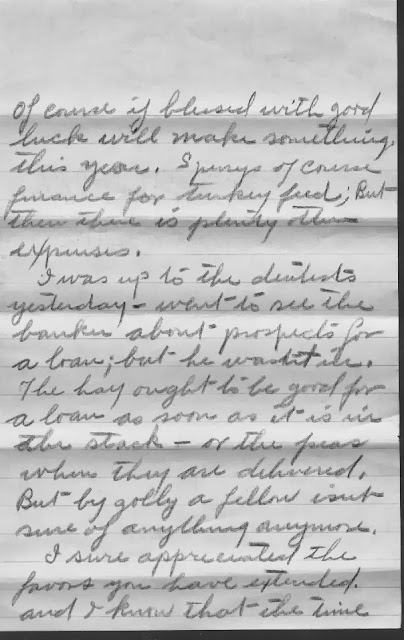 Of course if blessed with good
luck will make something,
this year. Sperrys of course
finance for turkey feed; But
then there is plenty other
expenses.
I was up to the dentists
yesterday - went to see the
banker about prospects for
a loan; but he wasn't in.
The hay ought to be good for
a loan as soon as it is in
the stack - or the peas
when they are delivered.
But by golly a fellow isn't
sure of anything anymore.
I sure appreciated the
favors you have extended.
and I know that the time